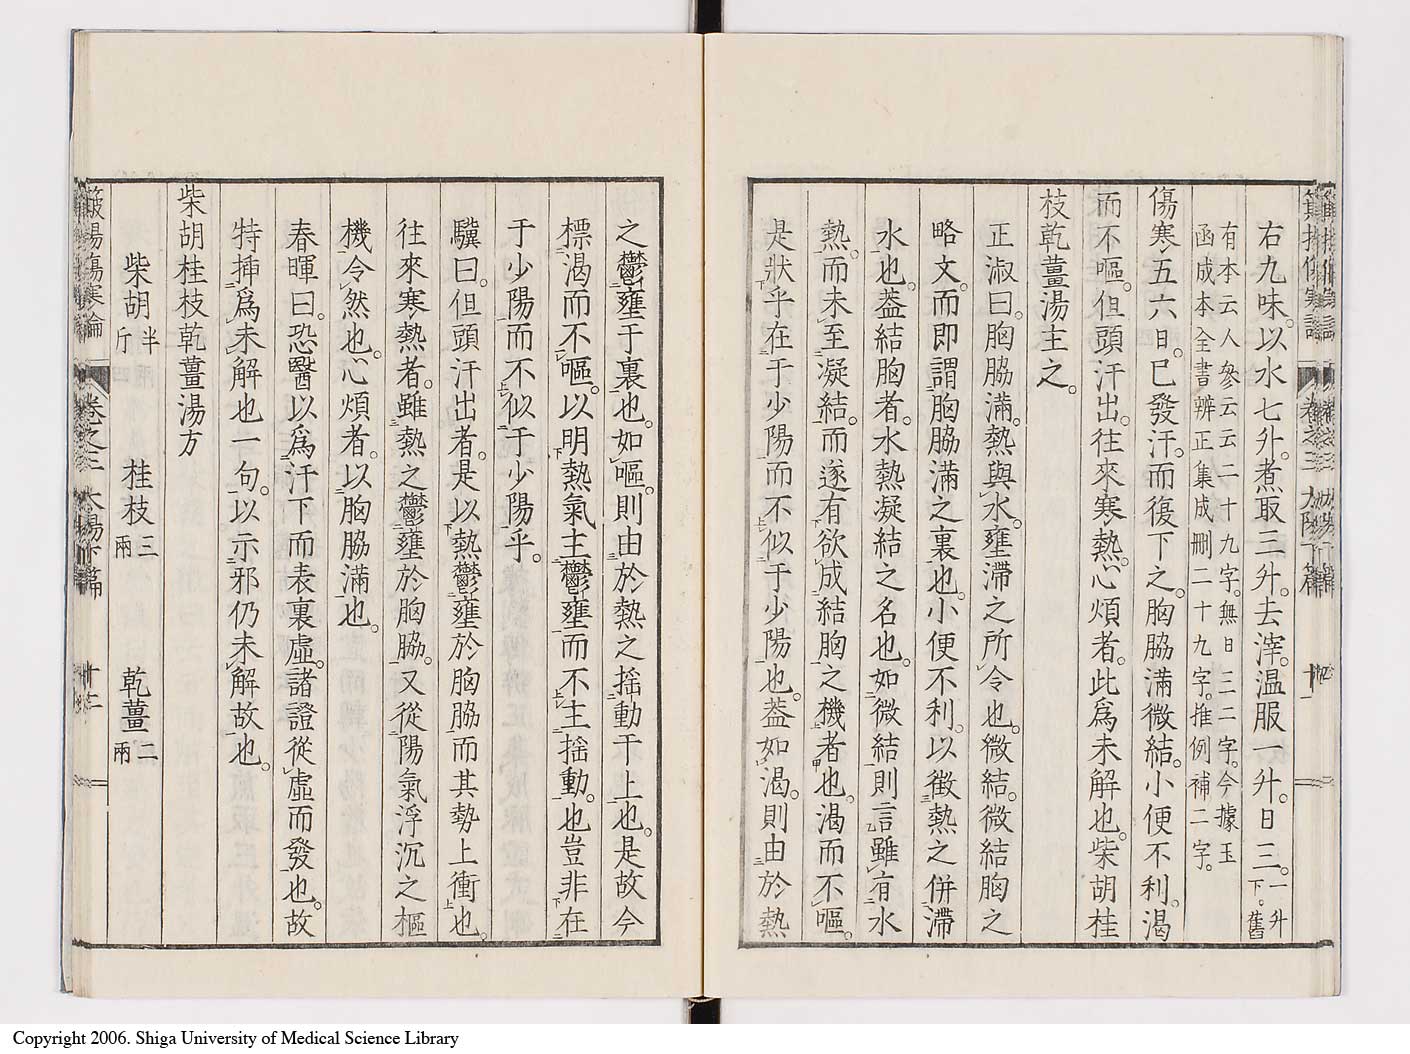 右九味。以水七升。煮取三升。去滓。温服一升。日三。一升下。舊
有本云人參云云二十九字。無日三二字。今據玉
函成本全書辨正集成刪二十九字。推例補二字。
傷寒五六日。已發汗。而復下之。胸脇滿微結。小便不利。渴
而不嘔。但頭汗出。往來寒熱。心煩者。此爲未解也。柴胡桂
枝乾薑湯主之。
正淑曰。胸脇滿。熱與水。壅滯之所令也。微結。微結胸之
略文。而即謂胸脇滿之裏也。小便不利。以徵熱之併滯
水也。葢結胸者。水熱凝結之名也。如微結則言雖有水
熱。而未至凝結。而遂有欲成結胸之機者也。渴而不嘔。
是狀乎在于少陽而不似于少陽也。葢如渴。則由於熱
之鬱壅于裏也。如嘔。則由於熱之搖動于上也。是故今
標渴而不嘔。以明熱氣主鬱壅而不主搖動。也豈非在
于少陽而不似于少陽乎。
驥曰。但頭汗出者。是以熱鬱壅於胸脇而其勢上衝也。
往來寒熱者。雖熱之鬱壅於胸脇。又從陽氣浮沉之樞
機令然也。心煩者。以胸脇滿也。
春暉曰。恐醫以爲汗下而表裏虛。諸證從虛而發也。故
特揷爲未解也一句。以示邪仍未解故也。
柴胡桂枝乾薑湯方
柴胡半斤 桂枝三兩 乾薑二兩
傷寒論 卷之三 太陽下篇 十二